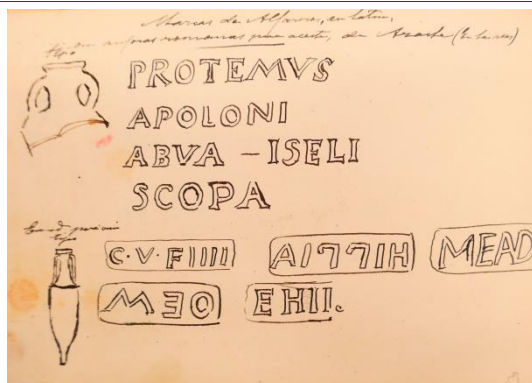 Marcas de Alfareros, en latin,
en anforas romanas para aceite, de
tipo
PROTEMVS
APOLONI
ABVA - ISELI
SCOPA
tipo
C·V·FIIII AI77IH MEAD
WEO EHII.